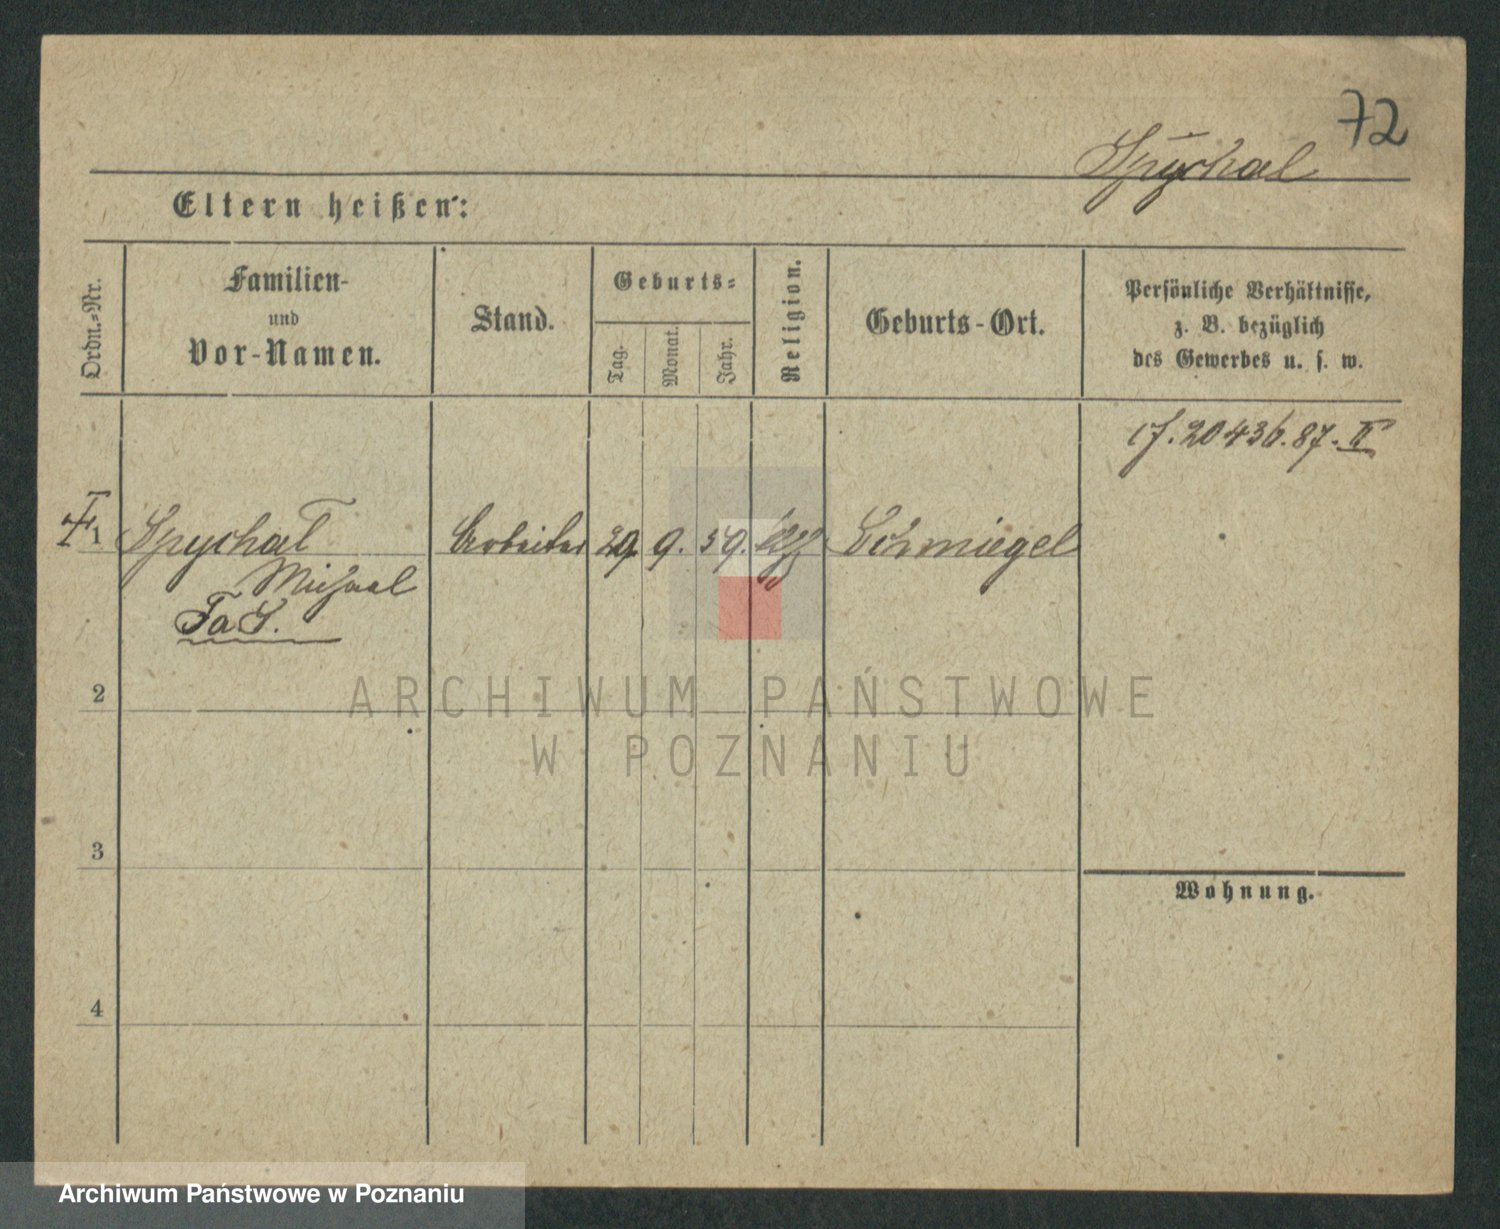 72
Spychal
Eltern heißen:
Ordn.-Nr.
Familien-
und
Vor-Namen.
Stand.
Geburts-
Tag.
Monat.
Jahr.
Religion.
Geburts-Ort.
Persönliche Verhältnisse,
z. B. bezüglich
des Gewerbes u. s. w.
20436.87. II
1 Spychal Arbeiter 29. 9. 59. Schmiegel
Michael
2
ARCHIWUM PAŃSTWOWE
W POZNANIU
3
Wohnung.
4
Archiwum Państwowe w Poznaniu